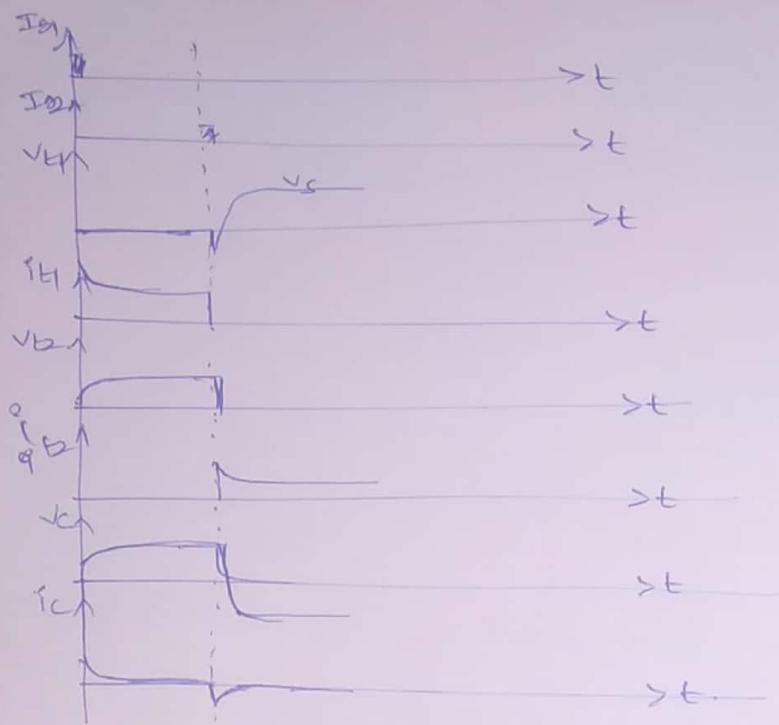 Ig1
t
Ig2
t
Vt1
Vs
t
it1
t
Vt2
t
it2
t
Vc
t
ic
t